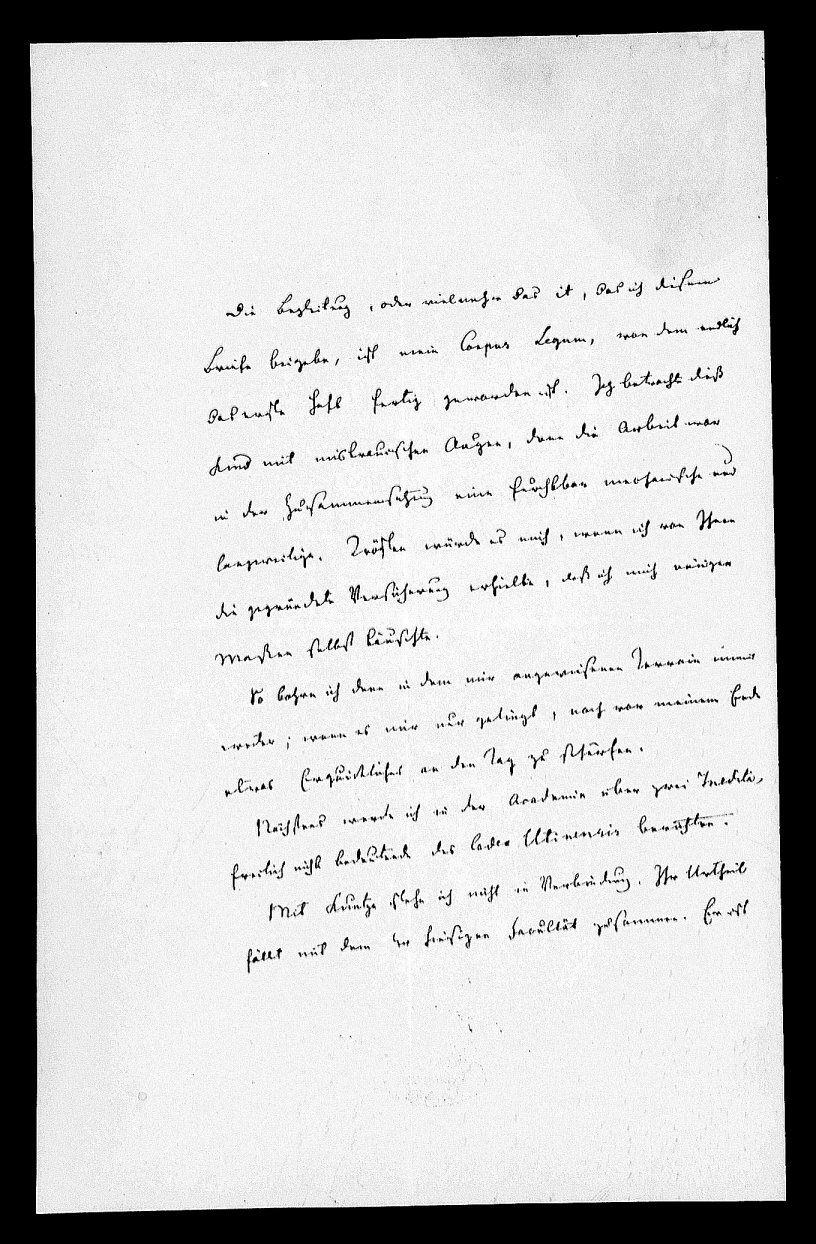 Die Begleitung, oder vielmehr das it, das ich diesem
Briefe beigebe, ist mein Corpus Legum, von dem endlich
das erste Heft fertig geworden ist. Ich betrachte dieß
Kind mit mistrauischen Augen, denn die Arbeit war
in der Zusammensetzung eine furchtbar mechanische und
langweilige. Trösten würde es mich, wenn ich von Ihnen
die gegründete Versicherung erhielte, daß ich mich einigen
Maßen selbst täuschte.
So bohre ich denn in dem mir angewiesenen Terrain immer
weiter; wenn es mir nur gelingt, noch vor meinem Ende
etwas Erquickliches an den Tag zu schürfen.
Nächstens werde ich in der Academie über zwei Inedita,
freilich nicht bedeutende des Codex Utinensis berichten.
Mit Kuntze stehe ich nicht in Verbindung. Ihr Urtheil
fällt mit dem der hiesigen Facultät zusammen. Er ist